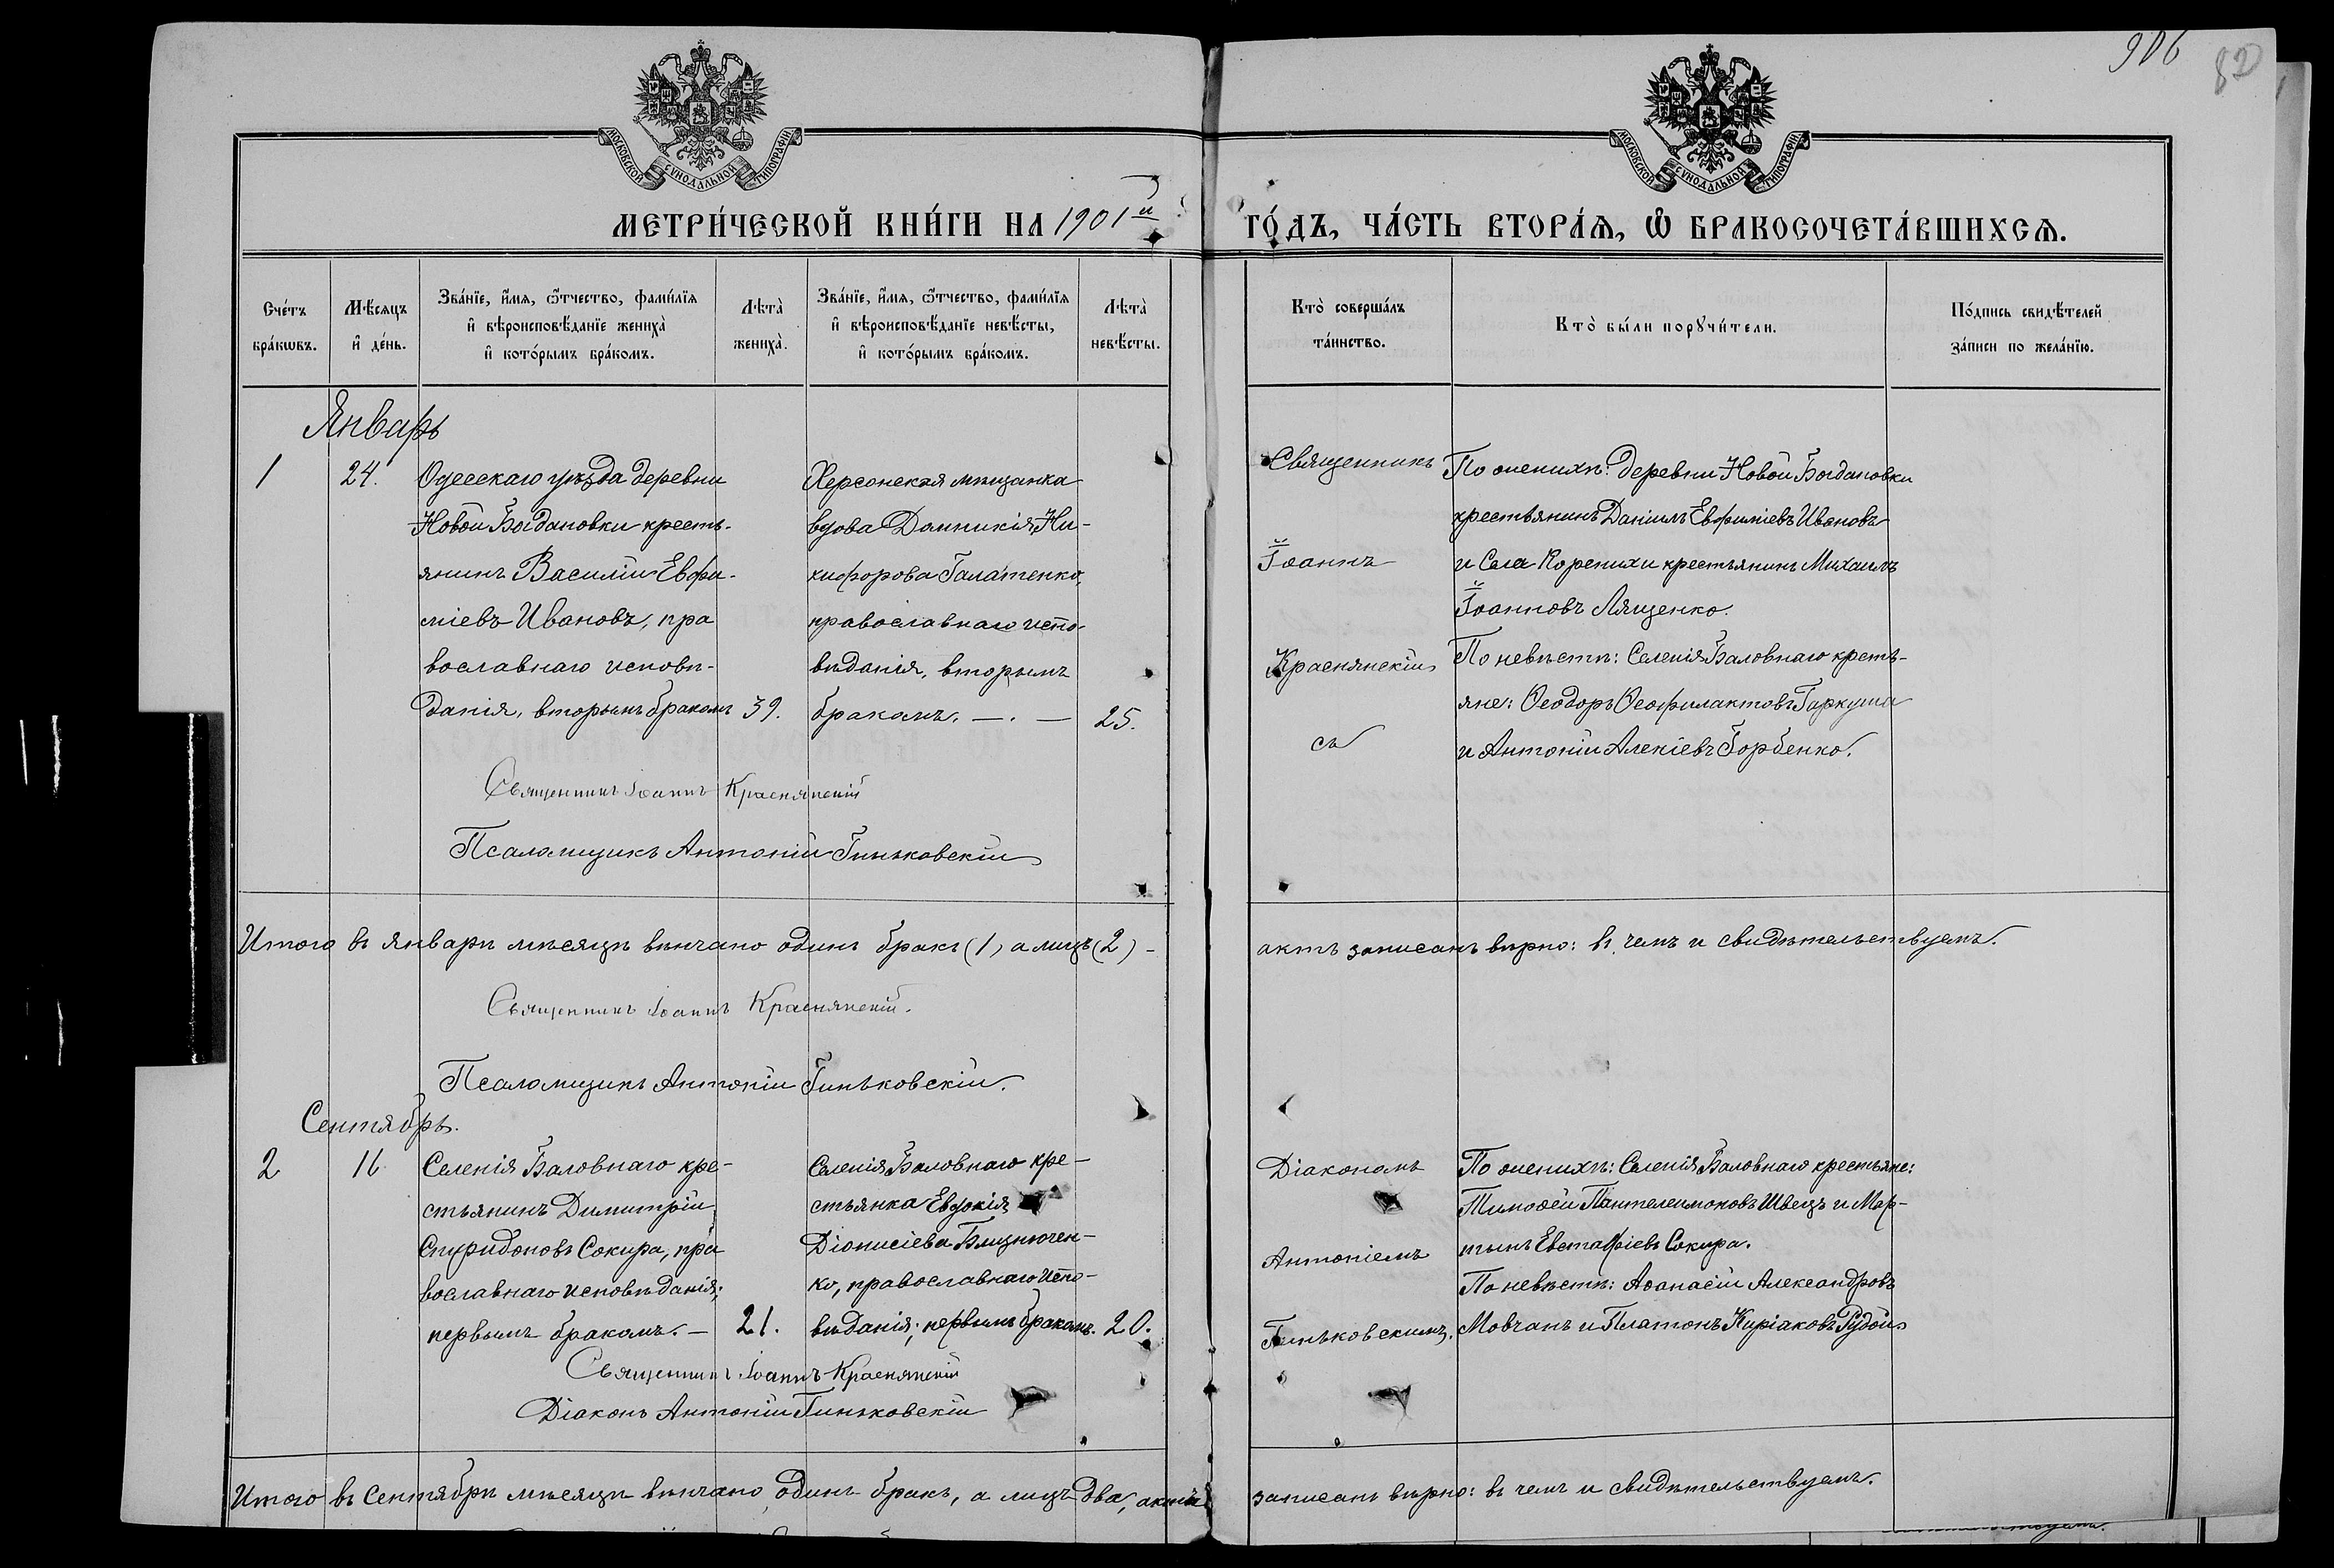 906
82
МОСКОВСКОЙ СѴНОДАЛЬНОЙ ТИПОГРАФІИ
МОСКОВСКОЙ СѴНОДАЛЬНОЙ ТИПОГРАФІИ
МЕТРИ́ЧЕСКОЙ КНИ́ГИ НА 1901й
ГО́ДЪ, ЧА́СТЬ ВТОРА́Ѧ, Ѡ҆ БРАКОСОЧЕТА́ВШИХСѦ.
Сче́тъ
бра́кѡвъ.
Мѣ́сяцъ
и҆ де́нь.
Зва́нїе, и҆́мѧ, ѻ҆́тчество, фами́лїѧ
и҆ вѣроисповѣ́данїе жениха̀
и҆ кото́рымъ бра́комъ.
Лѣта̀
жениха̀.
Зва́нїе, и҆́мѧ, ѻ҆́тчество, фами́лїѧ
и҆ вѣроисповѣ́данїе невѣ́сты,
и҆ кото́рымъ бра́комъ.
Лѣта̀
невѣ́сты.
Кто̀ соверша́лъ
та́инство.
Кто̀ бы́ли порꙋчи́тели.
По́дпись свидѣ́телей
за́писи по жела́нїю.
Январь
1
24.
Одесскаго уѣзда деревни
Новой Богдановки кресть-
янинъ Василій Евфи-
міевъ Ивановъ, пра
вославнаго исповѣ-
данія, вторымъ бракомъ
39.
Херсонская мѣщанка
вдова Домникія Ни-
кифорова Галатенко,
православнаго испо-
вѣданія, вторымъ
бракомъ. —. —
25.
Священникъ
Іоаннъ
Краснянскій
съ
По женихѣ: деревни Новой Богдановки
крестьянинъ Даніилъ Евфиміевъ Ивановъ
и Села Коренихи крестьянинъ Михаилъ
Іоанновъ Лященко.
По невѣстѣ: Селенія Баловнаго кресть-
яне: Ѳеодоръ Ѳеофилактовъ Гаркуша
и Антоній Алексіевъ Горбенко.
Священникъ Іоаннъ Краснянскій
Псаломщикъ Антоній Гиньковскій
Итого въ январѣ мѣсяцѣ вѣнчано одинъ бракъ (1) а лицъ (2) -
актъ записанъ вѣрно: въ чемъ и свидѣтельствуемъ.
Священникъ Іоаннъ Краснянскій.
Псаломщикъ Антоній Гиньковскій.
Сентябрь.
2
16
Селенія Баловнаго кре-
стьянинъ Димитрій
Спиридоновъ Сокира, пра
вославнаго исповѣданія;
первымъ бракомъ. —
21.
Селенія Баловнаго кре-
стьянка Евдокія
Діонисіева Близнючен-
ко, православнаго испо-
вѣданія; первымъ бракомъ.
20.
Діакономъ
Антоніемъ
Гиньковскимъ.
По женихѣ: Селенія Баловнаго крестьяне:
Тимоѳей Пантелеимоновъ Швецъ и Мар-
тынъ Евстафіевъ Сокира.
По невѣстѣ: Аѳанасій Александровъ
Мовчанъ и Платонъ Киріаковъ Рудой
Священникъ Іоаннъ Краснянскій
Діаконъ Антоній Гиньковскій
Итого въ Сентябрѣ мѣсяцѣ вѣнчано одинъ бракъ, а лицъ два, актъ
записанъ вѣрно: въ чемъ и свидѣтельствуемъ.